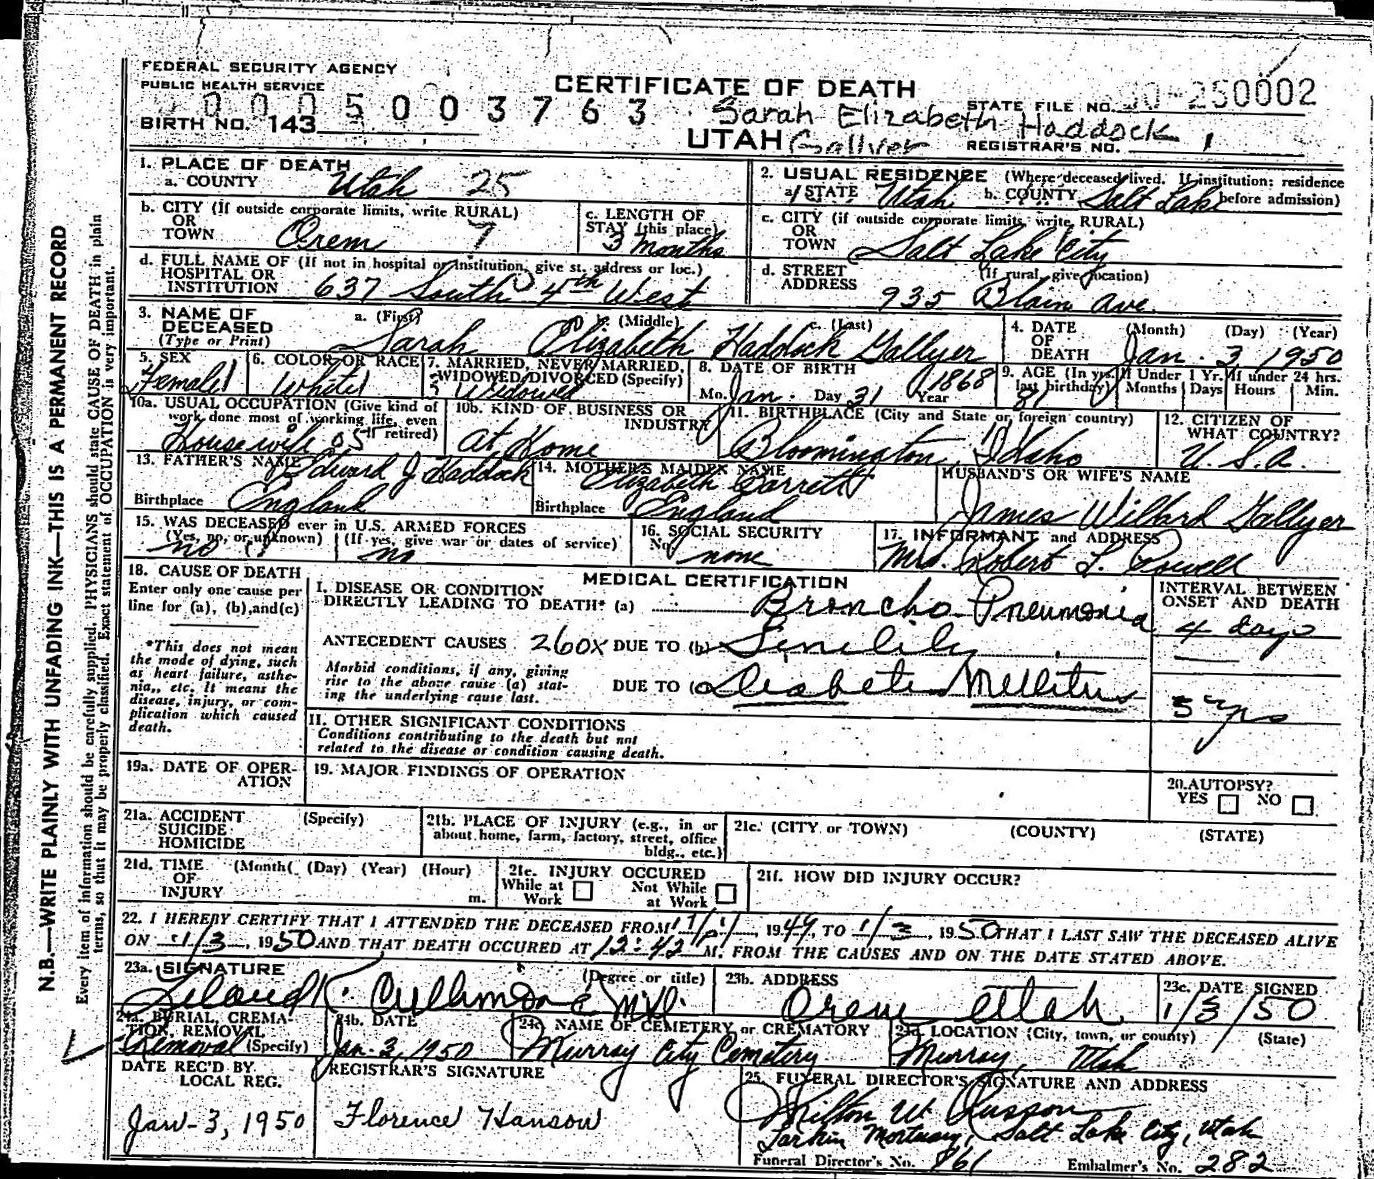 FEDERAL SECURITY AGENCY
PUBLIC HEALTH SERVICE
CERTIFICATE OF DEATH
0005003763
Sarah Elizabeth Haddock
STATE FILE NO. 50-250002
BIRTH NO. 143
UTAH Gallyer
REGISTRAR'S NO. 1
1. PLACE OF DEATH
a. COUNTY Utah 25
2. USUAL RESIDENCE (Where deceased lived. If institution: residence before admission)
a. STATE Utah b. COUNTY Salt Lake
b. CITY (If outside corporate limits, write RURAL)
OR
TOWN Orem 7
c. LENGTH OF
STAY (this place)
3 months
c. CITY (if outside corporate limits, write RURAL)
OR
TOWN Salt Lake City
d. FULL NAME OF (If not in hospital or institution, give st. address or loc.)
HOSPITAL OR
INSTITUTION 637 South 4th West
d. STREET (If rural, give location)
ADDRESS 935 Blain Ave.
3. NAME OF
DECEASED
(Type or Print)
a. (First) b. (Middle) c. (Last)
Sarah Elizabeth Haddock Gallyer
4. DATE
OF
DEATH
(Month) (Day) (Year)
Jan. 3, 1950
5. SEX
Female
6. COLOR OR RACE
White
7. MARRIED, NEVER MARRIED,
WIDOWED, DIVORCED (Specify)
Widowed
8. DATE OF BIRTH
Mo. Jan. Day 31 Year 1868
9. AGE (In yrs. last birthday)
81
If Under 1 Yr.
Months Days
If under 24 hrs.
Hours Min.
10a. USUAL OCCUPATION (Give kind of
work done most of working life, even
if retired)
Housewife 05
10b. KIND OF BUSINESS OR
INDUSTRY
at Home
11. BIRTHPLACE (City and State or foreign country)
Bloomington, Idaho
12. CITIZEN OF
WHAT COUNTRY?
U.S.A.
13. FATHER'S NAME Edward J Haddock
Birthplace England
14. MOTHER'S MAIDEN NAME
Elizabeth Barrett
Birthplace England
HUSBAND'S OR WIFE'S NAME
James Willard Gallyer
15. WAS DECEASED ever in U.S. ARMED FORCES
(Yes, no, or unknown) (If yes, give war or dates of service)
no no
16. SOCIAL SECURITY
No. none
17. INFORMANT and ADDRESS
Mrs. Robert L. Powell
18. CAUSE OF DEATH
Enter only one cause per
line for (a), (b), and (c)
*This does not mean
the mode of dying, such
as heart failure, asthe-
nia,, etc. It means the
disease, injury, or com-
plication which caused
death.
MEDICAL CERTIFICATION
I. DISEASE OR CONDITION
DIRECTLY LEADING TO DEATH* (a) Broncho Pneumonia
INTERVAL BETWEEN
ONSET AND DEATH
4 days
ANTECEDENT CAUSES 260X DUE TO (b) Senility
Morbid conditions, if any, giving
rise to the above cause (a) stat-
ing the underlying cause last.
DUE TO (c) Diabetes Mellitus
5 yrs
II. OTHER SIGNIFICANT CONDITIONS
Conditions contributing to the death but not
related to the disease or condition causing death.
19a. DATE OF OPER-
ATION
19. MAJOR FINDINGS OF OPERATION
20. AUTOPSY?
YES NO
21a. ACCIDENT
SUICIDE
HOMICIDE
(Specify)
21b. PLACE OF INJURY (e.g., in or
about home, farm, factory, street, office
bldg., etc.)
21c. (CITY or TOWN) (COUNTY) (STATE)
21d. TIME
OF
INJURY
(Month( (Day) (Year) (Hour)
m.
21e. INJURY OCCURED
While at
Work
Not While
at Work
21f. HOW DID INJURY OCCUR?
22. I HEREBY CERTIFY THAT I ATTENDED THE DECEASED FROM 11/1/, 1949, TO 1/3, 1950 THAT I LAST SAW THE DECEASED ALIVE
ON 1/3, 1950 AND THAT DEATH OCCURED AT 12:42 M. FROM THE CAUSES AND ON THE DATE STATED ABOVE.
23a. SIGNATURE (Degree or title)
Leland K. Cullimore MD.
23b. ADDRESS
Orem Utah
23c. DATE SIGNED
1/3/50
24a. BURIAL, CREMA-
TION, REMOVAL
Removal (Specify)
24b. DATE
Jan. 3, 1950
24c. NAME OF CEMETERY or CREMATORY
Murray City Cemetery
24d. LOCATION (City, town, or county) (State)
Murray, Utah
DATE REC'D BY
LOCAL REG.
Jan-3, 1950
REGISTRAR'S SIGNATURE
Florence Hanson
25. FUNERAL DIRECTOR'S SIGNATURE AND ADDRESS
Milton W.
Larkin Mortuary, Salt Lake City, Utah
Funeral Director's No. 861 Embalmer's No. 282
N.B.—WRITE PLAINLY WITH UNFADING INK—THIS IS A PERMANENT RECORD
Every item of information should be carefully supplied. PHYSICIANS should state CAUSE OF DEATH in plain
terms, so that it may be properly classified. Exact statement of OCCUPATION is very important.